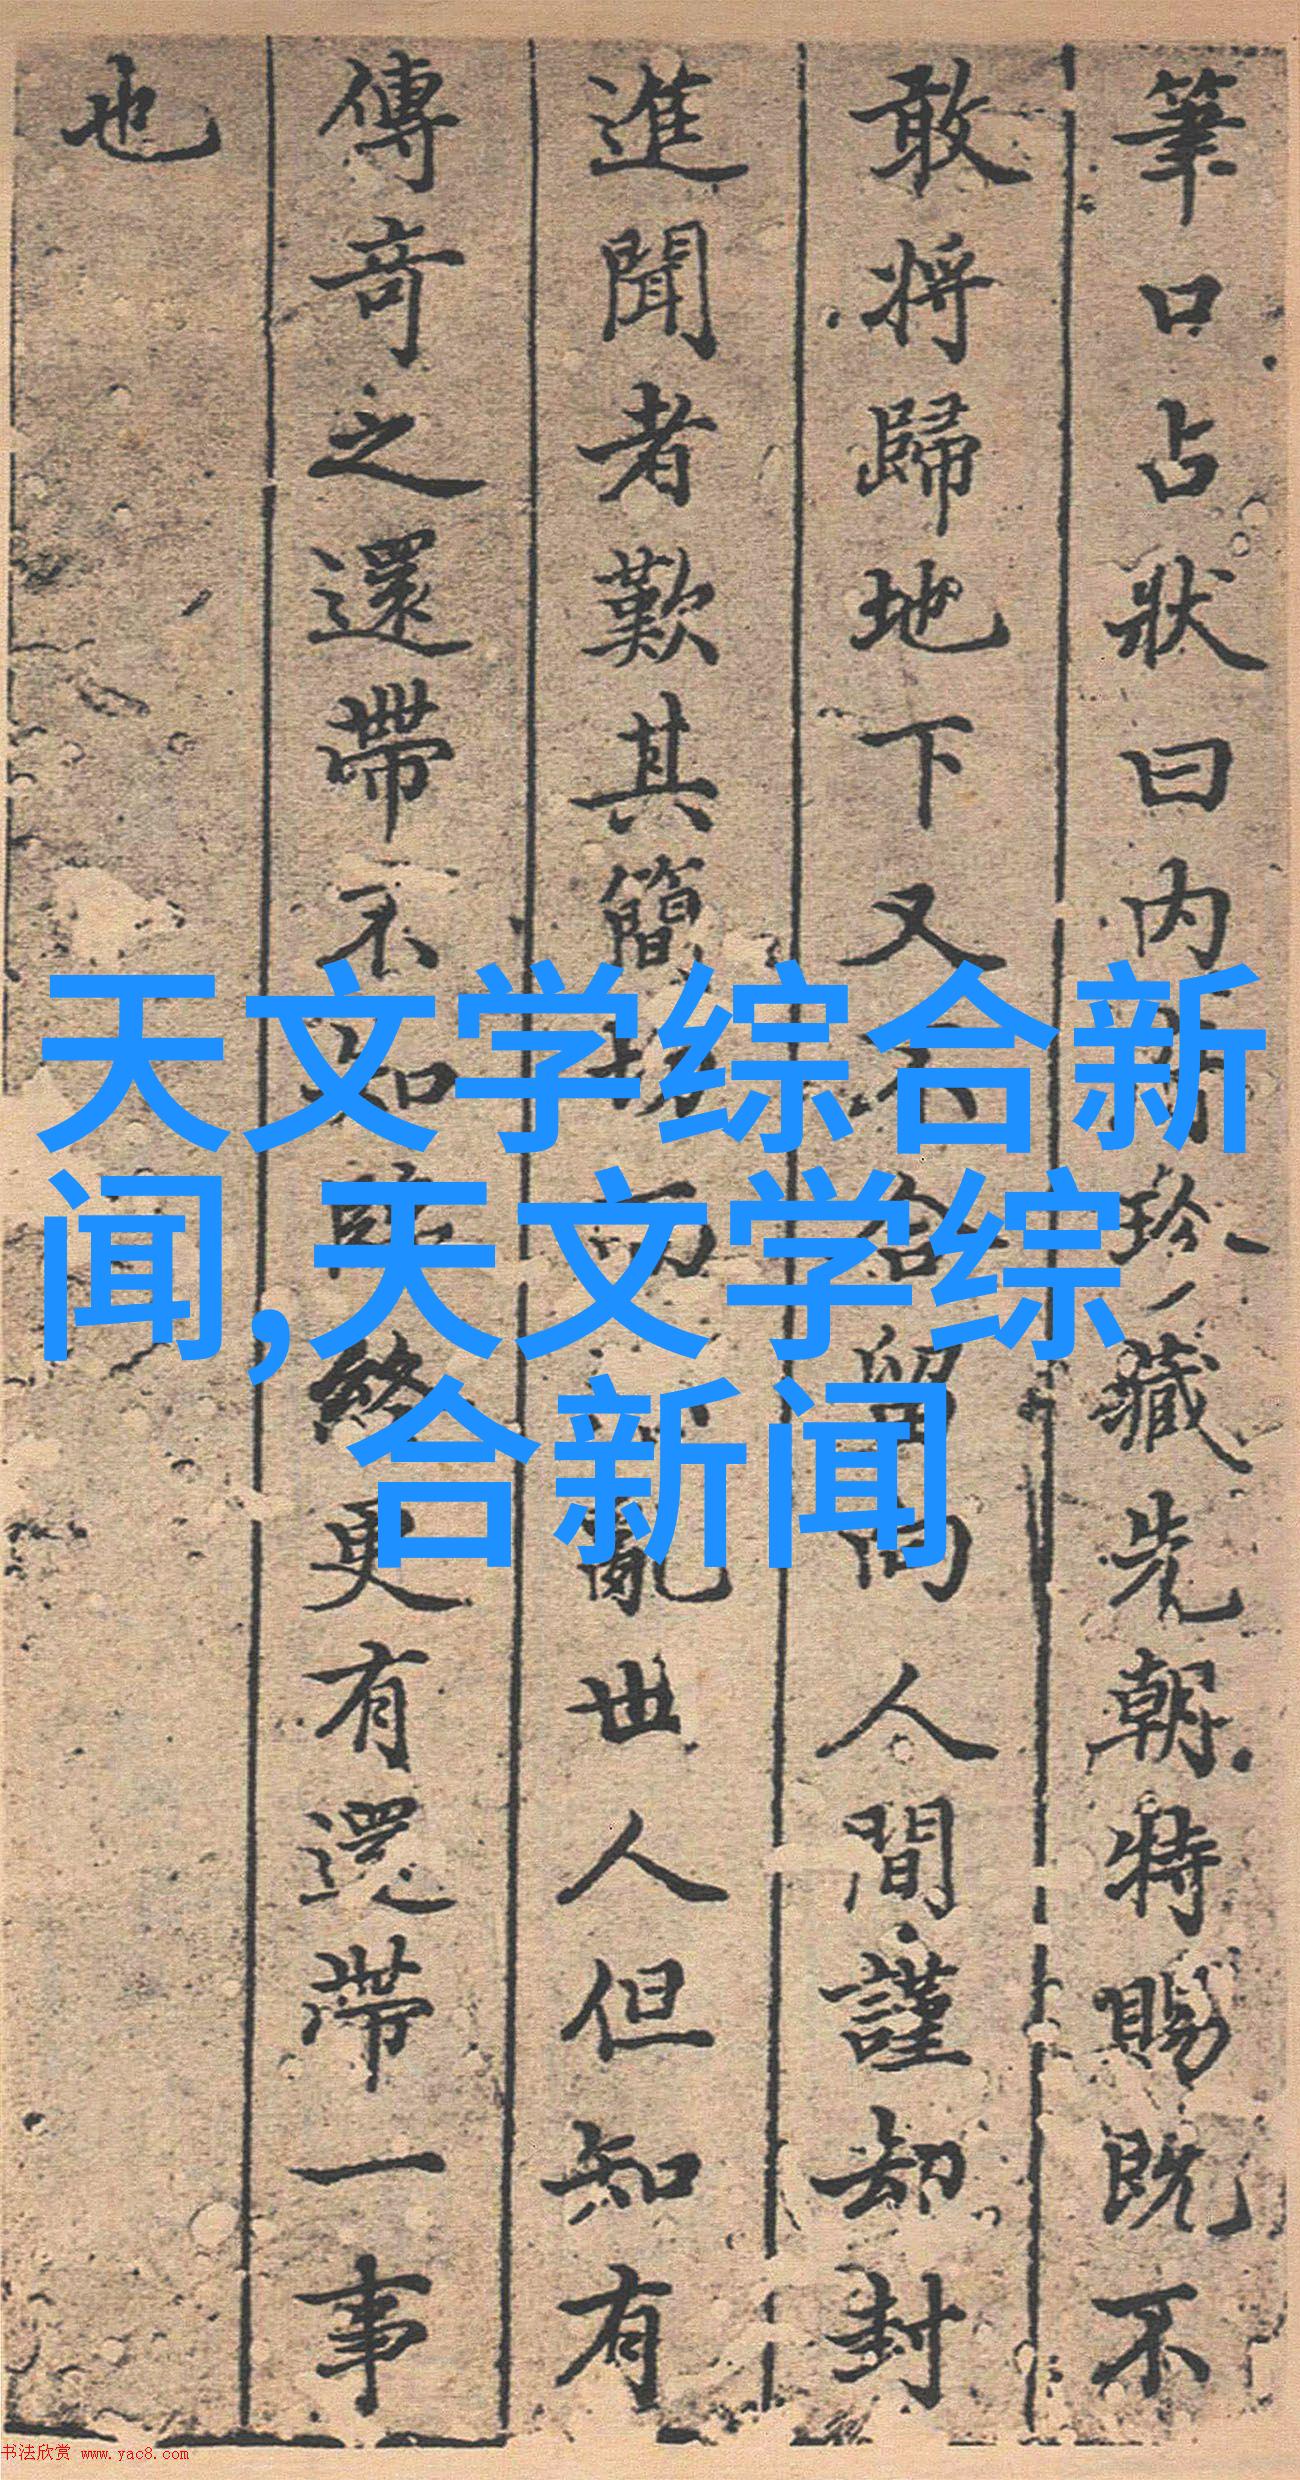 筆口占狀曰内珍藏先朝特賜既不
敢將歸地下又不合留向人間謹却封
進聞者歎其簡切而不亂世人但知有
傳奇之還帶不知臨終更有還帶一事
也
天文学综合新
闻,天文学综
合新闻
书法欣赏 www.yac8.com